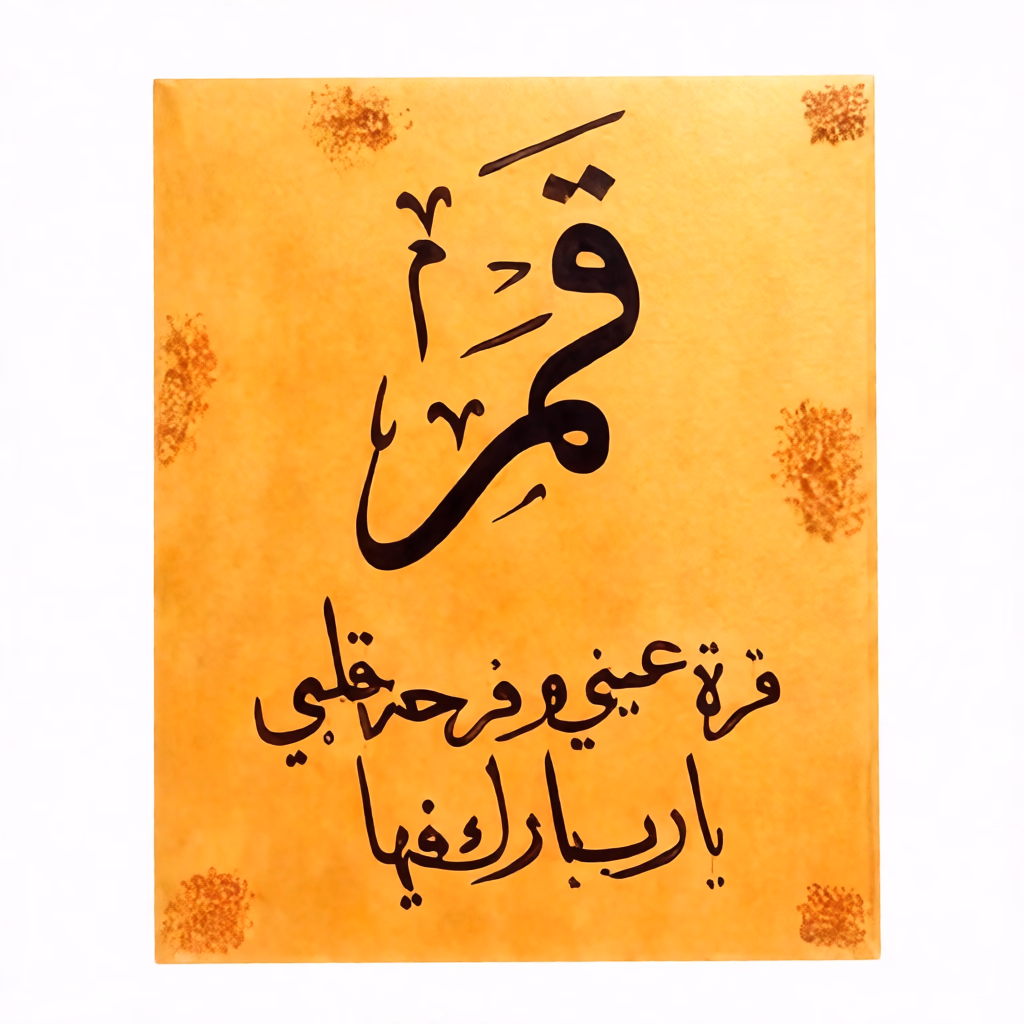 قمر
قرة عيني و فرحة قلبي
يا رب بارك فيها